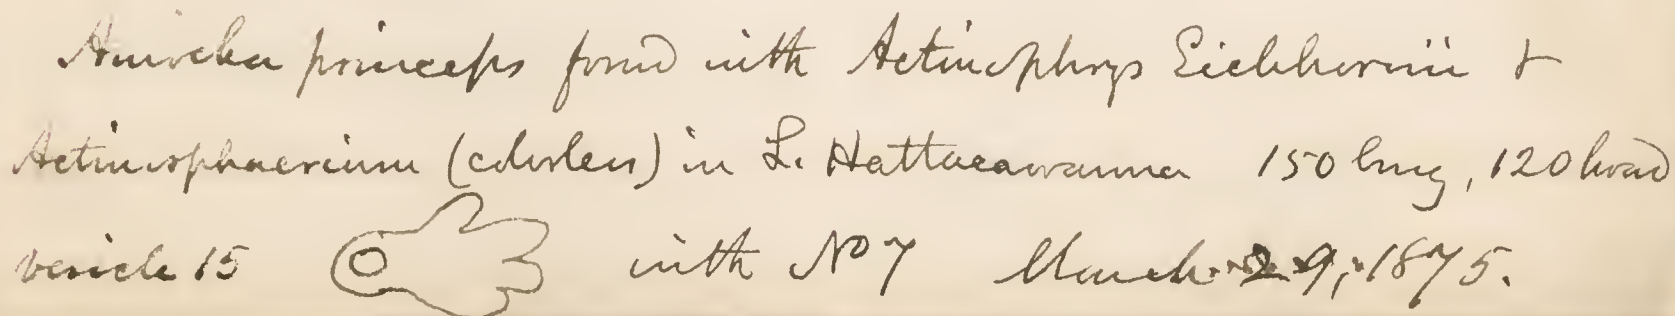 Amoeba princeps found with Actinophrys Eichhornii &
Actinosphaerium (colorless) in L. Hattacawanna 150 long, 120 broad
vesicle 15 with No 7 March 29, 1875.